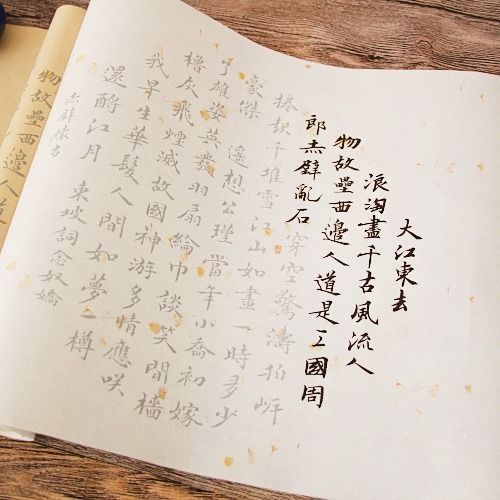 大江東去
浪淘盡千古風流人
物故壘西邊人道是三國周
郎赤壁亂石穿空驚濤拍岸
捲起千堆雪江山如畫一時多少
豪傑 遙想公瑾當年小喬初嫁
了雄姿英發羽扇綸巾談笑間檣
櫓灰飛煙滅故國神游多情應咲
我早生華髮人間如夢一樽
還酹江月 東坡詞念奴嬌
赤壁懷古
物故壘西邊人道